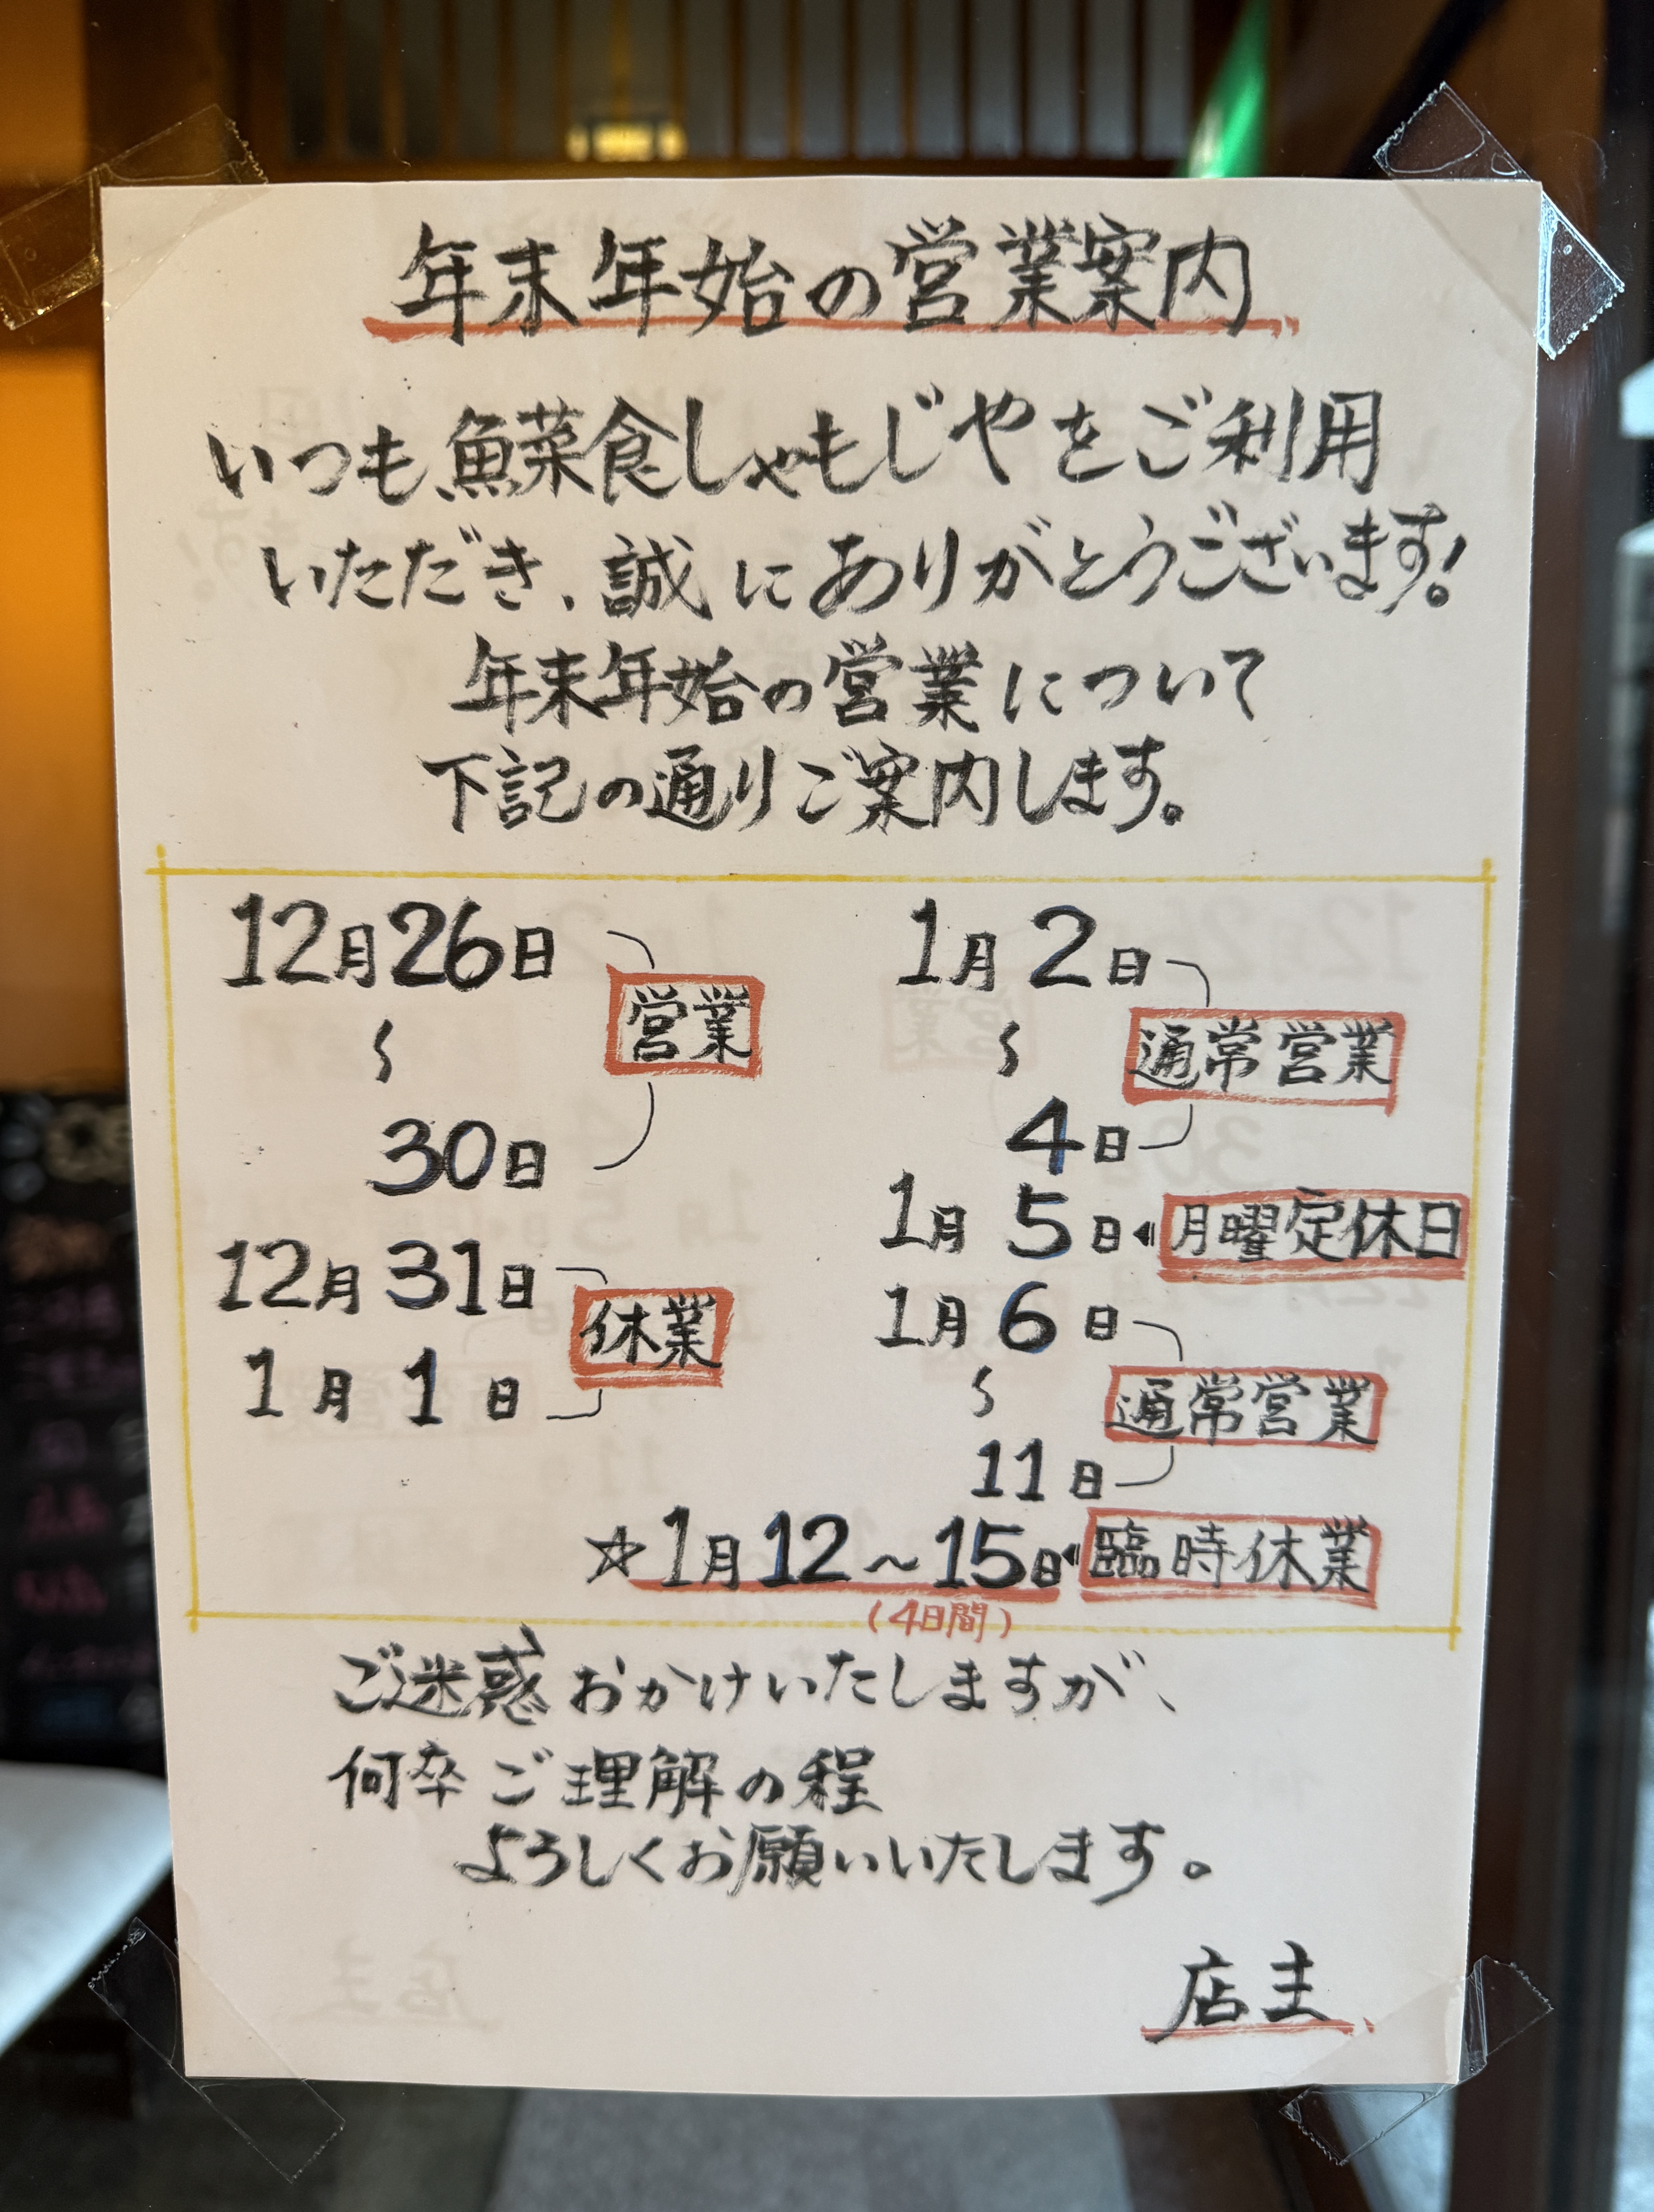 年末年始の営業案内
いつも魚菜食しゃもじやをご利用
いただき、誠にありがとうございます!
年末年始の営業について
下記の通りご案内します。
12月26日
〜
30日
営業
12月31日
1月1日
休業
1月2日
〜
4日
通常営業
1月5日◀月曜定休日
1月6日
〜
11日
通常営業
☆1月12〜15日◀臨時休業
(4日間)
ご迷惑おかけいたしますが、
何卒ご理解の程
よろしくお願いいたします。
店主